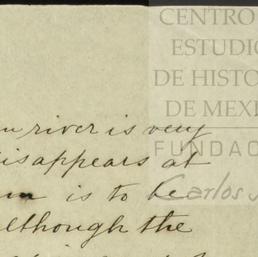 CENTRO
ESTUDIO
DE HISTO
DE MEXI
FUNDAC
river is very
disappears at
is to be
Carlos
although the